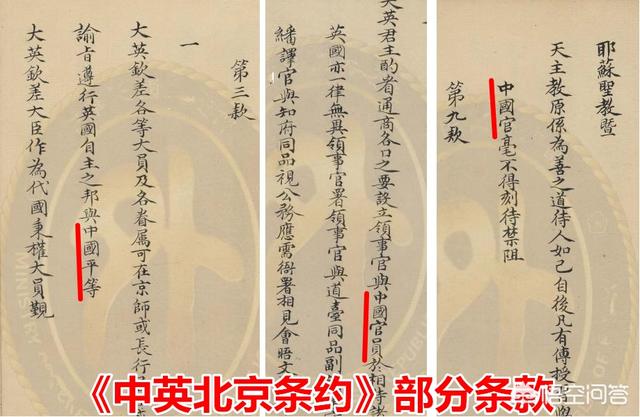 第三款
一
大英欽差各等大員及各眷屬可在京師或長行
諭旨遵行英國自主之邦與中國平等
大英欽差大臣作為代國秉權大員覲
英君主酌看通商各口之要設立領事官與中國官員於相待諸
英國亦一律無異領事官署領事官與道臺同品副
繙譯官與知府同品視公務應需衙署相見會晤文
耶穌聖教暨
天主教原係為善之道待人如己自後凡有傳授
中國官毫不得刻待禁阻
第九款
《中英北京条约》部分条款
悟空问答